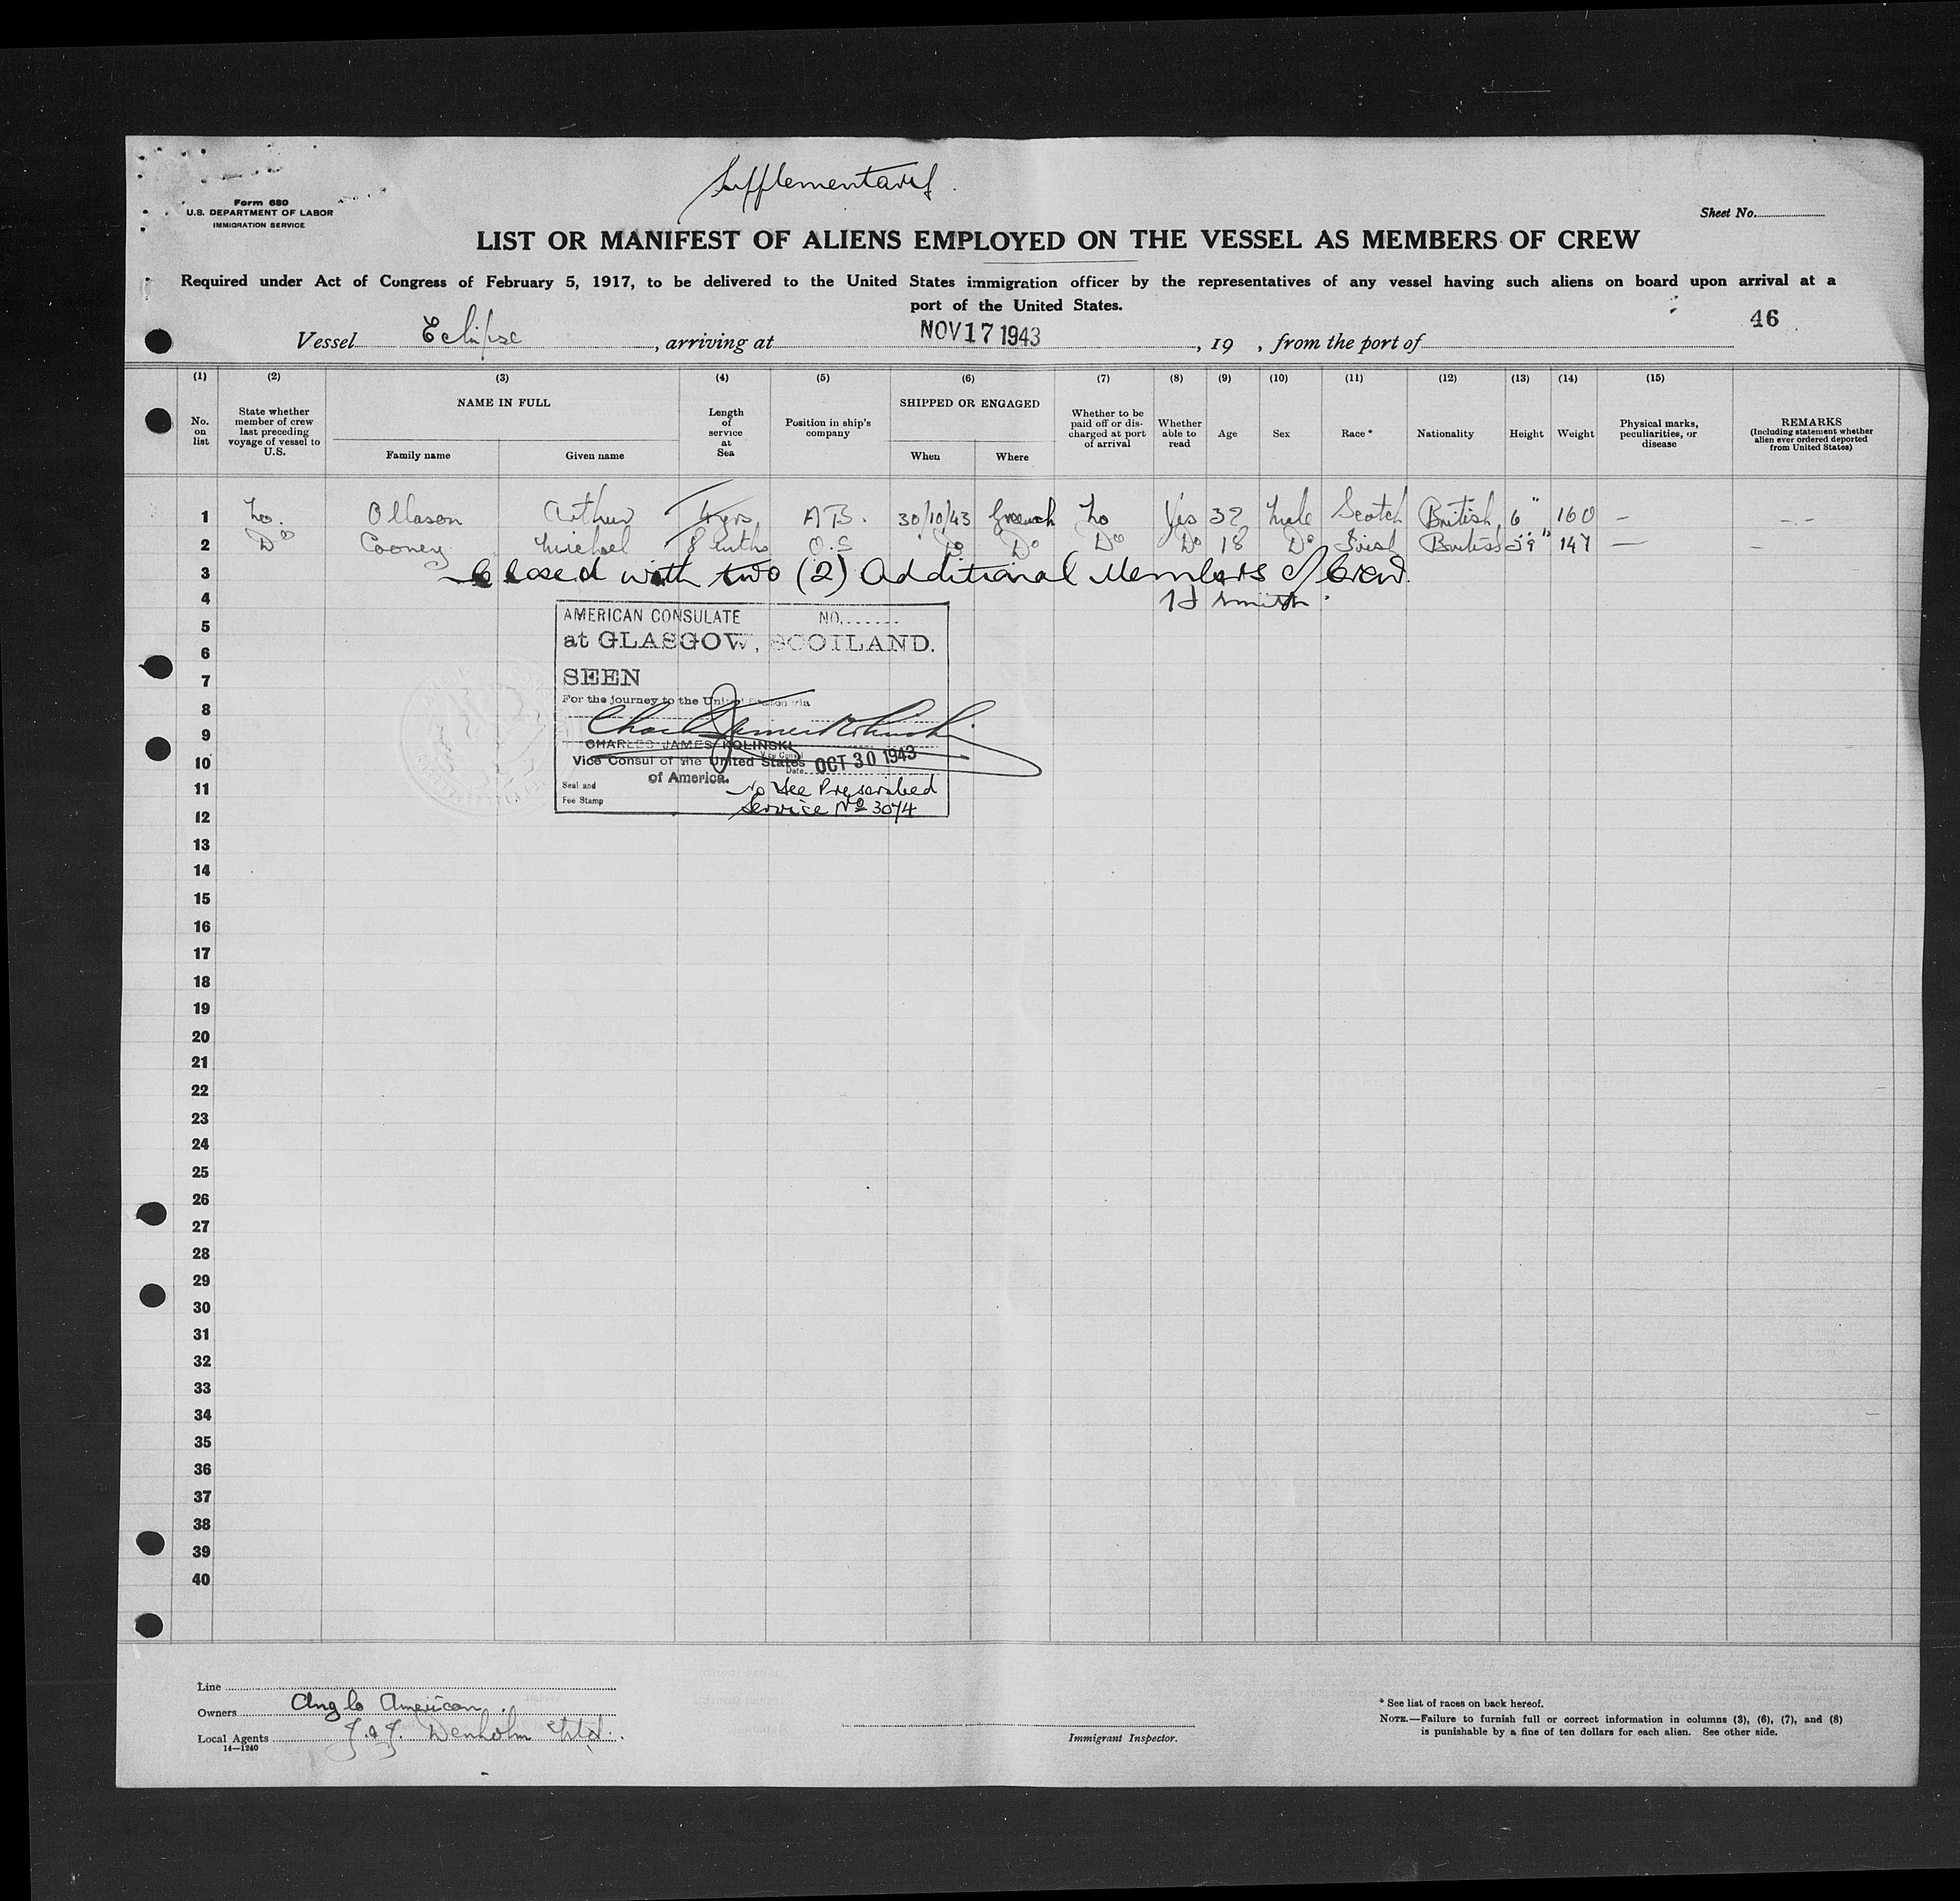 Supplementary
Form 680
U.S. DEPARTMENT OF LABOR
IMMIGRATION SERVICE
Sheet No.
LIST OR MANIFEST OF ALIENS EMPLOYED ON THE VESSEL AS MEMBERS OF CREW
Required under Act of Congress of February 5, 1917, to be delivered to the United States immigration officer by the representatives of any vessel having such aliens on board upon arrival at a
port of the United States.
46
Vessel Eclipse, arriving at NOV 17 1943, 19 , from the port of
(1) (2) (3) (4) (5) (6) (7) (8) (9) (10) (11) (12) (13) (14) (15)
No. on list
State whether member of crew last preceding voyage of vessel to U.S.
NAME IN FULL
Family name
Given name
Length of service at Sea
Position in ship's company
SHIPPED OR ENGAGED
When
Where
Whether to be paid off or discharged at port of arrival
Whether able to read
Age
Sex
Race *
Nationality
Height
Weight
Physical marks, peculiarities, or disease
REMARKS
(Including statement whether alien ever ordered deported from United States)
1 No. Ollason Arthur 4 yrs A.B. 30/10/43 Greenock No Yes 32 Male Scotch British 6" 160 — —
2 Do Cooney Michael 8 mths O.S Do Do Do Do 18 Do Irish British 5'9" 147 — —
3 Closed with two (2) Additional Members of Crew.
4
5
6
7
8
9
10
11
12
13
14
15
16
17
18
19
20
21
22
23
24
25
26
27
28
29
30
31
32
33
34
35
36
37
38
39
40
Smith
AMERICAN CONSULATE NO.
at GLASGOW, SCOTLAND.
SEEN
For the journey to the United States via
Charles James Kolinski
CHARLES JAMES KOLINSKI
Vice Consul
Vice Consul of the United States
of America.
Date OCT 30 1943
Seal and
Fee Stamp
No Fee Prescribed
Service No 3074
Line
Owners Anglo American.
Local Agents J. & J. Denholm Ltd.
14—1240
Immigrant Inspector.
* See list of races on back hereof.
NOTE.—Failure to furnish full or correct information in columns (3), (6), (7), and (8)
is punishable by a fine of ten dollars for each alien. See other side.